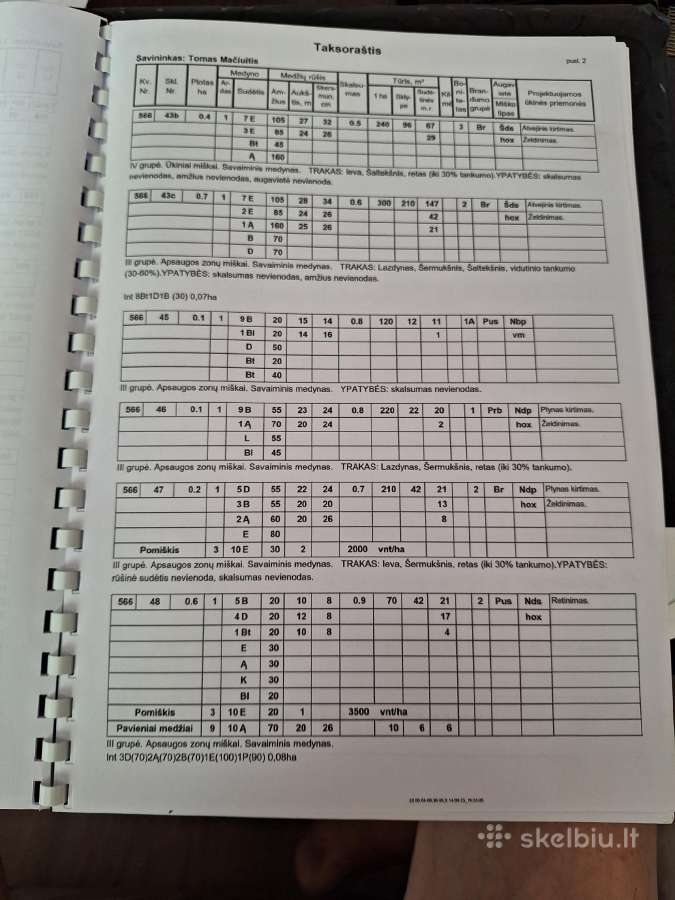 Taksoraštis
Savininkas: Tomas Mačiuitis pusl. 2
Kv. Nr. Skl. Nr. Plotas ha Medyno Ar-das Sudėtis Medžių rūšis Am-žius Aukš-tis, m Skers-mun. cm Skalsu-mas Tūris, m³ 1 ha Skly-pe Sudė-tinės m.r Bo-ni-te-tas Bran-dumo grupė Augav ietė Miško tipas Projektuojamos ūkinės priemonės
566 43b 0.4 1 7 E 105 27 32 0.5 240 96 67 3 Br Šds Atvejinis kirtimas.
3 E 85 24 26 29 hox Želdinimas.
Bt 45
Ą 160
IV grupė. Ūkiniai miškai. Savaiminis medynas. TRAKAS: Ieva, Šaltekšnis, retas (iki 30% tankumo).YPATYBĖS: skalsumas
nevienodas, amžius nevienodas, augavietė nevienoda.
566 43c 0.7 1 7 E 105 28 34 0.6 300 210 147 2 Br Šds Atvejinis kirtimas.
2 E 85 24 26 42 hox Želdinimas.
1 Ą 160 25 26 21
B 70
D 70
III grupė. Apsaugos zonų miškai. Savaiminis medynas. TRAKAS: Lazdynas, Šermukšnis, Šaltekšnis, vidutinio tankumo
(30-60%).YPATYBĖS: skalsumas nevienodas, amžius nevienodas.
Int 8Bt1D1B (30) 0,07ha
566 45 0.1 1 9 B 20 15 14 0.8 120 12 11 1A Pus Nbp
1 Bl 20 14 16 1 vm
D 50
Bt 20
Bt 40
III grupė. Apsaugos zonų miškai. Savaiminis medynas. YPATYBĖS: skalsumas nevienodas.
566 46 0.1 1 9 B 55 23 24 0.8 220 22 20 1 Prb Ndp Plynas kirtimas.
1 Ą 70 20 24 2 hox Želdinimas.
L 55
Bl 45
III grupė. Apsaugos zonų miškai. Savaiminis medynas. TRAKAS: Lazdynas, Šermukšnis, retas (iki 30% tankumo).
566 47 0.2 1 5 D 55 22 24 0.7 210 42 21 2 Br Ndp Plynas kirtimas.
3 B 55 20 20 13 hox Želdinimas.
2 Ą 60 20 26 8
E 80
Pomiškis 3 10 E 30 2 2000 vnt/ha
III grupė. Apsaugos zonų miškai. Savaiminis medynas. TRAKAS: Ieva, Šermukšnis, retas (iki 30% tankumo).YPATYBĖS:
rūšinė sudėtis nevienoda, skalsumas nevienodas.
566 48 0.6 1 5 B 20 10 8 0.9 70 42 21 2 Pus Nds Retinimas.
4 D 20 12 8 17 hox
1 Bt 20 10 8 4
E 30
Ą 30
K 30
Bl 20
Pomiškis 3 10 E 20 1 3500 vnt/ha
Pavieniai medžiai 9 10 Ą 70 20 26 10 6 6
III grupė. Apsaugos zonų miškai. Savaiminis medynas.
Int 3D(70)2Ą(70)2B(70)1E(100)1P(90) 0,08ha
skelbiu.lt